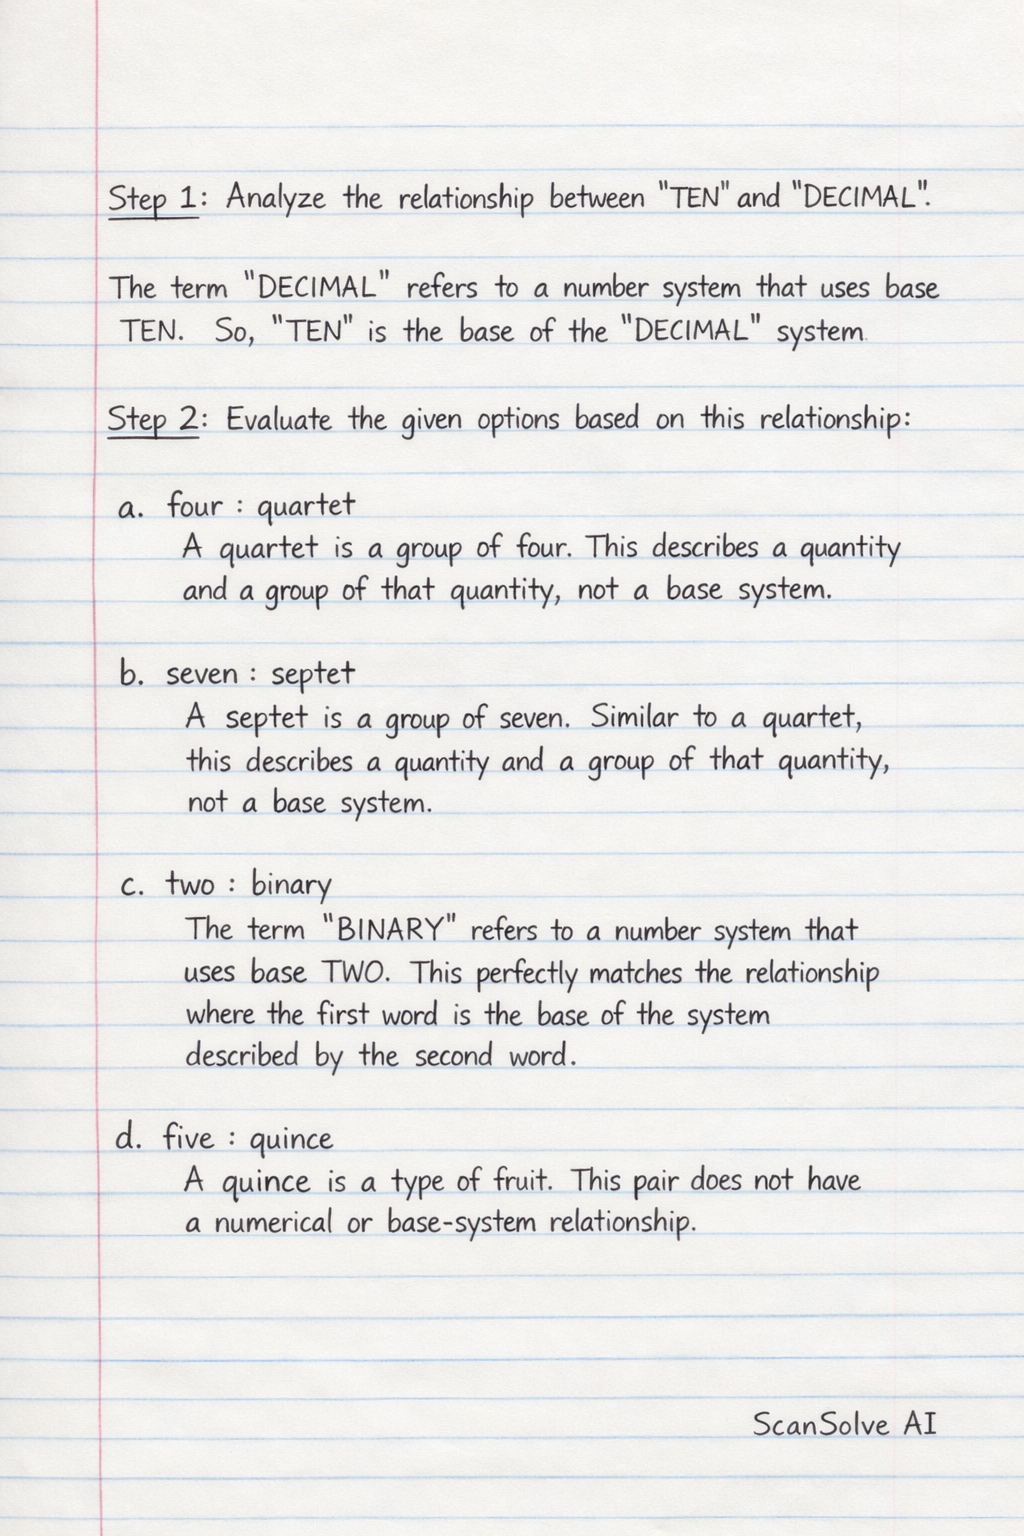 Step 1: Analyze the relationship between "TEN" and "DECIMAL".
The term "DECIMAL" refers to a number system that uses base
TEN. So, "TEN" is the base of the "DECIMAL" system.
Step 2: Evaluate the given options based on this relationship:
a. four : quartet
A quartet is a group of four. This describes a quantity
and a group of that quantity, not a base system.
b. seven : septet
A septet is a group of seven. Similar to a quartet,
this describes a quantity and a group of that quantity,
not a base system.
c. two : binary
The term "BINARY" refers to a number system that
uses base TWO. This perfectly matches the relationship
where the first word is the base of the system
described by the second word.
d. five : quince
A quince is a type of fruit. This pair does not have
a numerical or base-system relationship.
ScanSolve AI